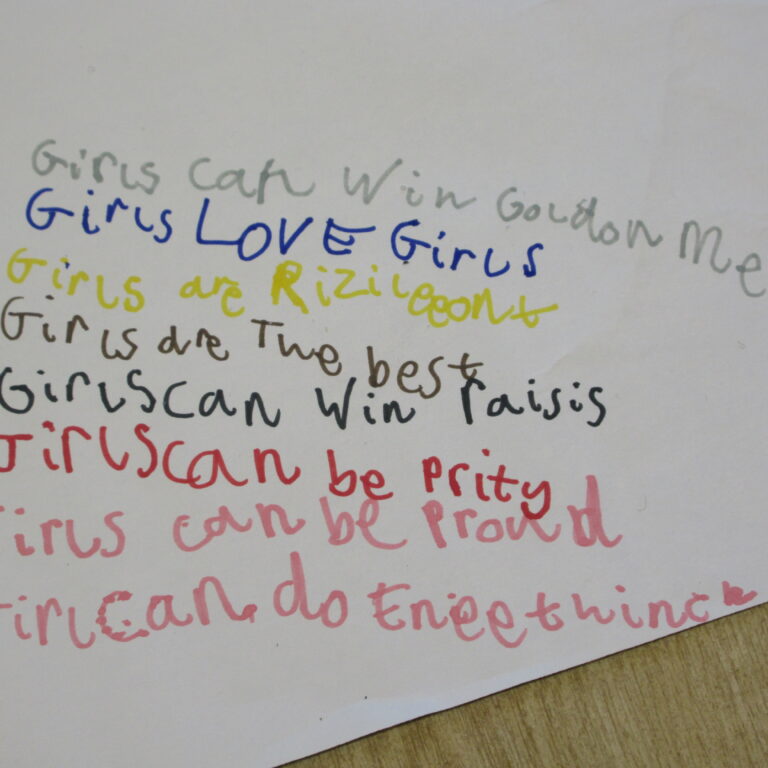 Girls can win Goldon Me
Girls LOVE Girls
Girls are Rizileeont
Girls are The best
Girls can win raisis
Girls can be prity
Girls can be proud
Girl can do Eneethinck